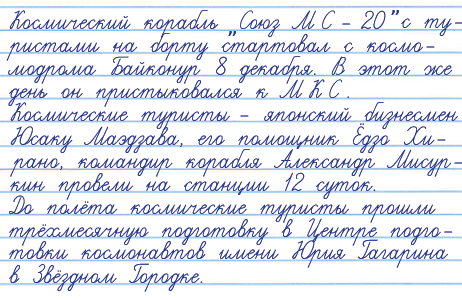 Космический корабль "Союз МС - 20" с ту-
ристами на борту стартовал с космо-
модрома Байконур 8 декабря. В этот же
день он пристыковался к МКС.
Космические туристы - японский бизнесмен
Юсаку Маэдзава, его помощник Ёдзо Хи-
рано, командир корабля Александр Мисур-
кин провели на станции 12 суток.
До полёта космические туристы прошли
трёхмесячную подготовку в Центре подго-
товки космонавтов имени Юрия Гагарина
в Звёздном Городке.